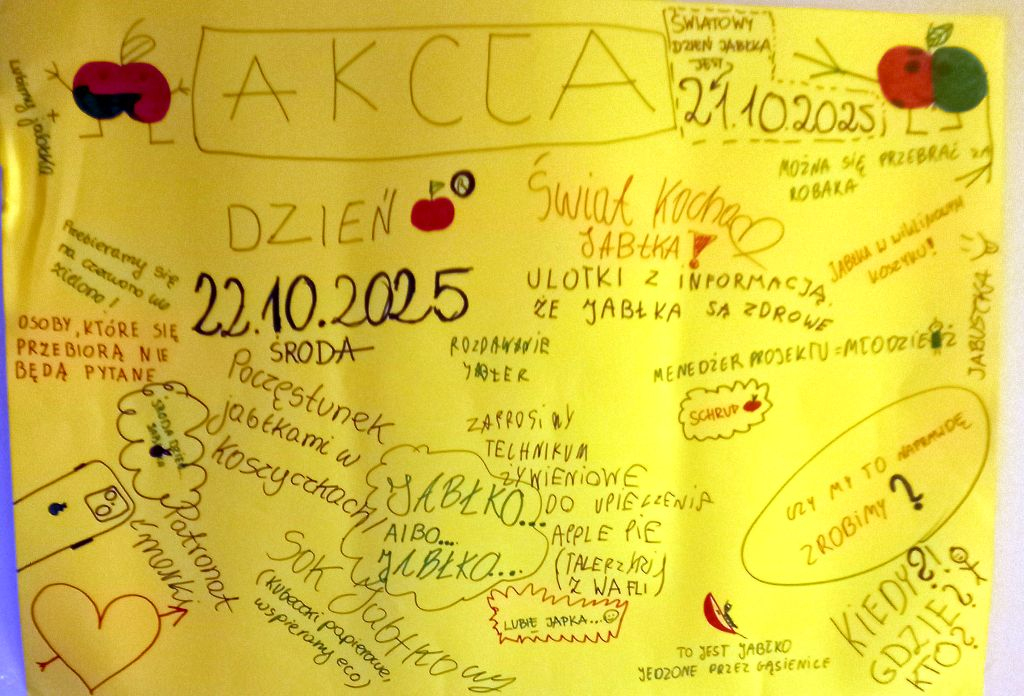 AKCJA
ŚWIATOWY
DZIEŃ JABŁKA
JEST
21.10.2025
lubimy jabłka
+
MOŻNA SIĘ PRZEBRAĆ ZA
ROBAKA
DZIEŃ
Świat Kocha
JABŁKA
JABŁKA W WIKLINOWYM
KOSZYKU!
Przebieramy się
na czerwono lub
zielono!
22.10.2025
ŚRODA
ULOTKI Z INFORMACJĄ,
ŻE JABŁKA SĄ ZDROWE
JABUSTKA
OSOBY, KTÓRE SIĘ
PRZEBIORĄ NIE
BĘDĄ PYTANE
ROZDAWANIE
MENEDŻER PROJEKTU = MŁODZIEŻ
SCHRUP
Poczęstunek
jabłkami w
koszyczkach
ZAPROSIMY
TECHNIKUM
ŻYWIENIOWE
DO UPIECZENIA
APPLE PIE
(TALERZKI
Z WAFLI)
JABŁKO...
ALBO...
JABŁKO...
CZY MY TO NAPRAWDĘ
ZROBIMY?
Patronat
Sok jabłkowy
(kubeczki papierowe,
wspieramy eco)
LUBIĘ JAPKA...
TO JEST JABŁKO
JEDZONE PRZEZ GĄSIENICE
KIEDY?!
GDZIE?
KTO?